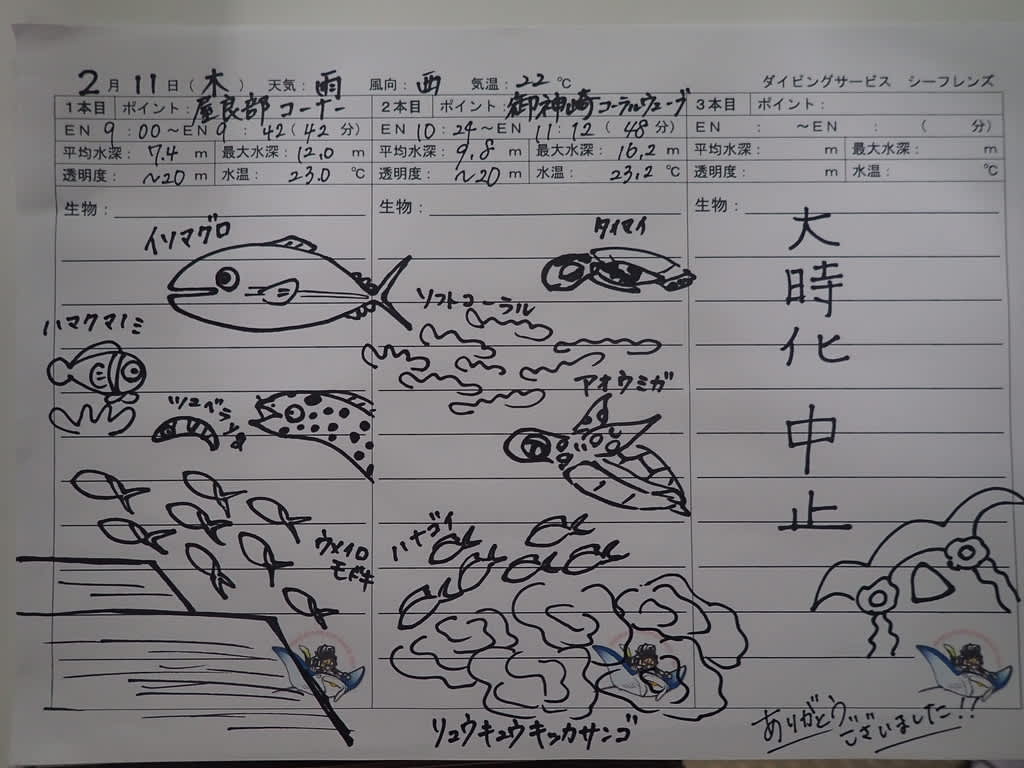 2月11日(木) 天気:雨 風向:西 気温:22℃ ダイビングサービス シーフレンズ
1本目 ポイント:屋良部コーナー
EN 9:00~EN 9:42(42分)
平均水深:7.4m 最大水深:12.0m
透明度:~20m 水温:23.0℃
生物:
イソマグロ
ハマクマノミ
ウメイロ
モドキ
2本目 ポイント:御神崎コーラルウェーブ
EN 10:24~EN 11:12(48分)
平均水深:9.8m 最大水深:16.2m
透明度:~20m 水温:23.2℃
生物:
タイマイ
ソフトコーラル
アオウミガメ
ハナゴイ
リュウキュウキッカサンゴ
3本目 ポイント:
EN : ~EN : ( 分)
平均水深: m 最大水深: m
透明度: m 水温: ℃
生物:
大時化
中止
ありがとう
ございました!!